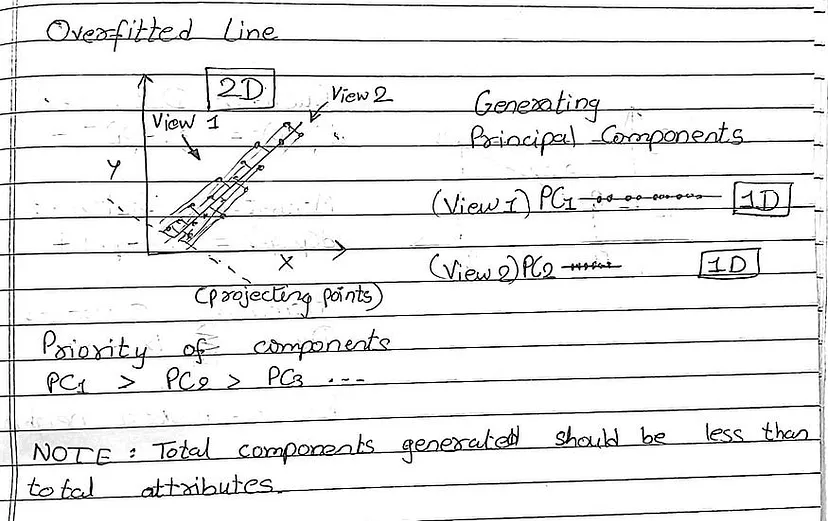 Overfitted Line
2D
View 1
View 2
Y
X
(projecting points)
Generating
Principal Components
(View 1) PC1 1D
(View 2) PC2 1D
Priority of components
PC1 > PC2 > PC3 ...
NOTE : Total components generated should be less than
total attributes.